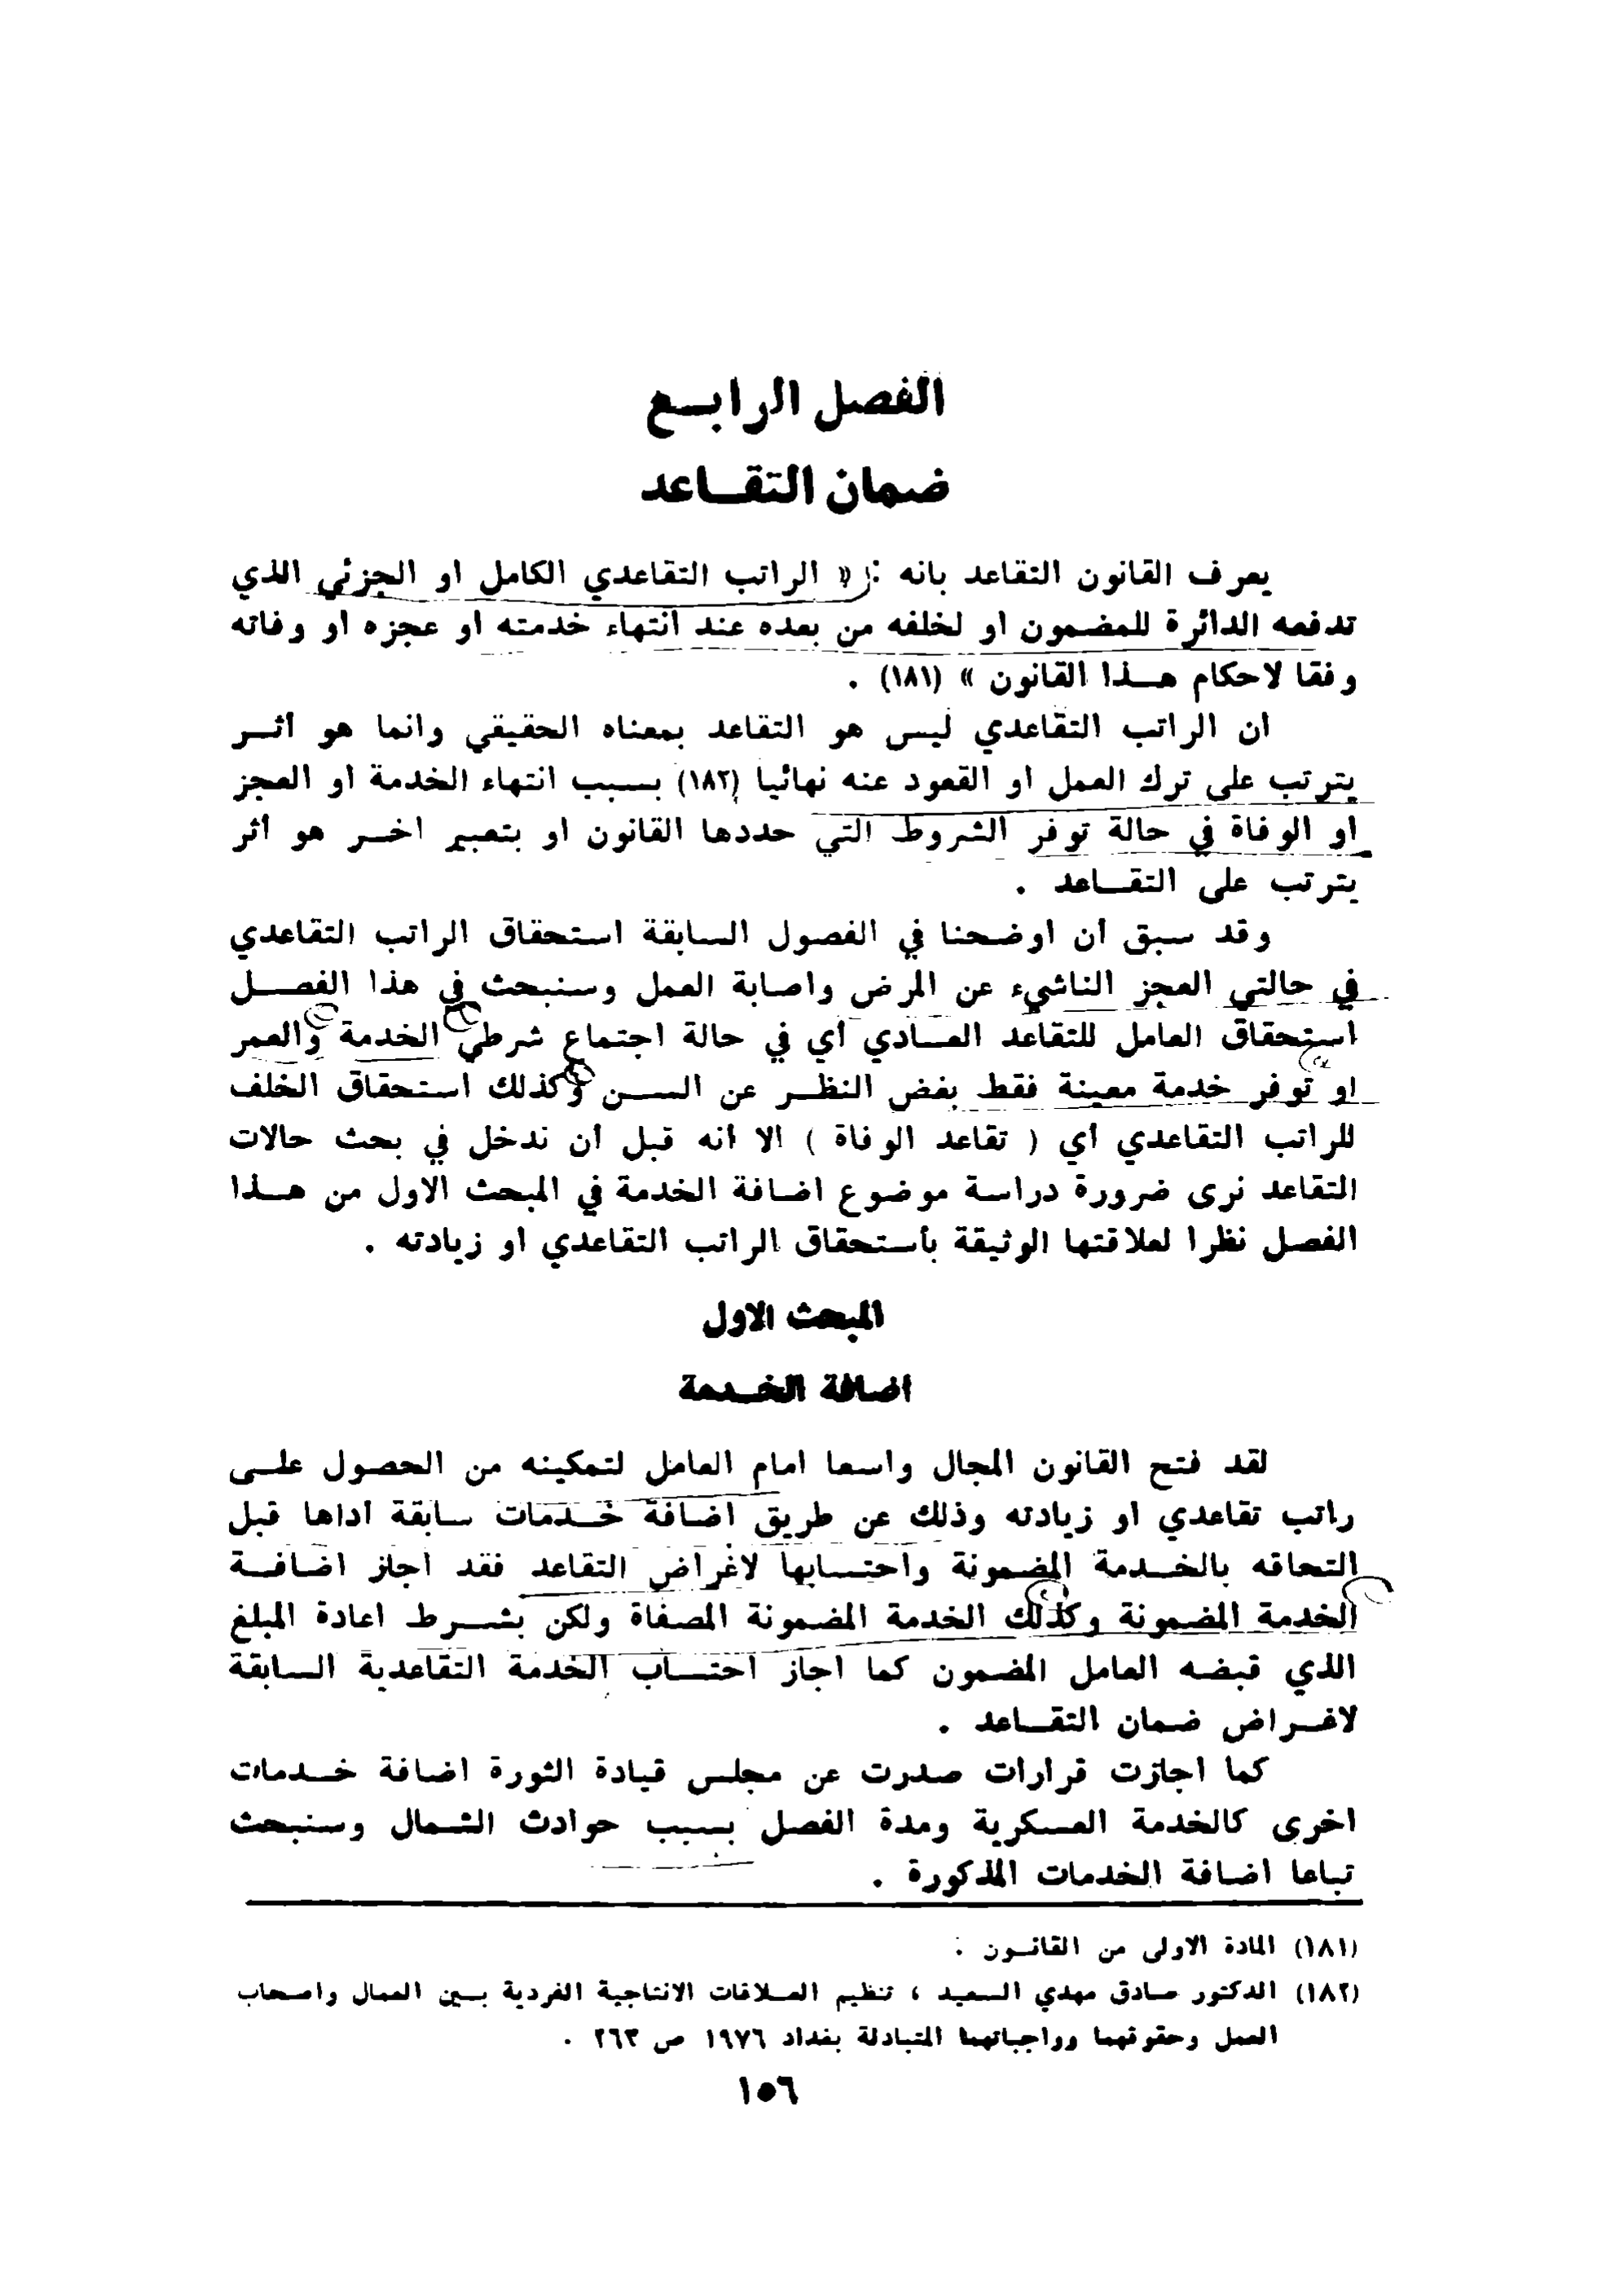 الفصل الرابع
ضمان التقاعد
يعرف القانون التقاعد بانه : « الراتب التقاعدي الكامل او الجزئي الذي
تدفعه الدائرة للمضمون او لخلفه من بعده عند انتهاء خدمته او عجزه او وفاته
وفقا لاحكام هذا القانون » (١٨١) .
ان الراتب التقاعدي ليس هو التقاعد بمعناه الحقيقي وانما هو أثر
يترتب على ترك العمل او القعود عنه نهائيا (١٨٢) بسبب انتهاء الخدمة او العجز
او الوفاة في حالة توفر الشروط التي حددها القانون او بتعبير اخر هو أثر
يترتب على التقاعد .
وقد سبق أن اوضحنا في الفصول السابقة استحقاق الراتب التقاعدي
في حالتي العجز الناشيء عن المرض واصابة العمل وسنبحث في هذا الفصل
استحقاق العامل للتقاعد العادي أي في حالة اجتماع شرطي الخدمة والعمر
او توفر خدمة معينة فقط بغض النظر عن السن وكذلك استحقاق الخلف
للراتب التقاعدي أي ( تقاعد الوفاة ) الا أنه قبل أن ندخل في بحث حالات
التقاعد نرى ضرورة دراسة موضوع اضافة الخدمة في المبحث الاول من هذا
الفصل نظرا لعلاقتها الوثيقة بأستحقاق الراتب التقاعدي او زيادته .
المبحث الاول
اضافة الخدمة
لقد فتح القانون المجال واسعا امام العامل لتمكينه من الحصول على
راتب تقاعدي او زيادته وذلك عن طريق اضافة خدمات سابقة أداها قبل
التحاقه بالخدمة المضمونة واحتسابها لاغراض التقاعد فقد أجاز اضافة
الخدمة المضمونة وكذلك الخدمة المضمونة المصفاة ولكن بشرط اعادة المبلغ
الذي قبضه العامل المضمون كما اجاز احتساب الخدمة التقاعدية السابقة
لاغراض ضمان التقاعد .
كما اجازت قرارات صدرت عن مجلس قيادة الثورة اضافة خدمات
اخرى كالخدمة العسكرية ومدة الفصل بسبب حوادث الشمال وسنبحث
تباعا اضافة الخدمات المذكورة .
(١٨١) المادة الاولى من القانون .
(١٨٢) الدكتور صادق مهدي السعيد ، تنظيم العلاقات الانتاجية الفردية بين العمال واصحاب
العمل وحقوقهما وواجباتهما المتبادلة بغداد ١٩٧٦ ص ٢٦٣ .
١٥٦